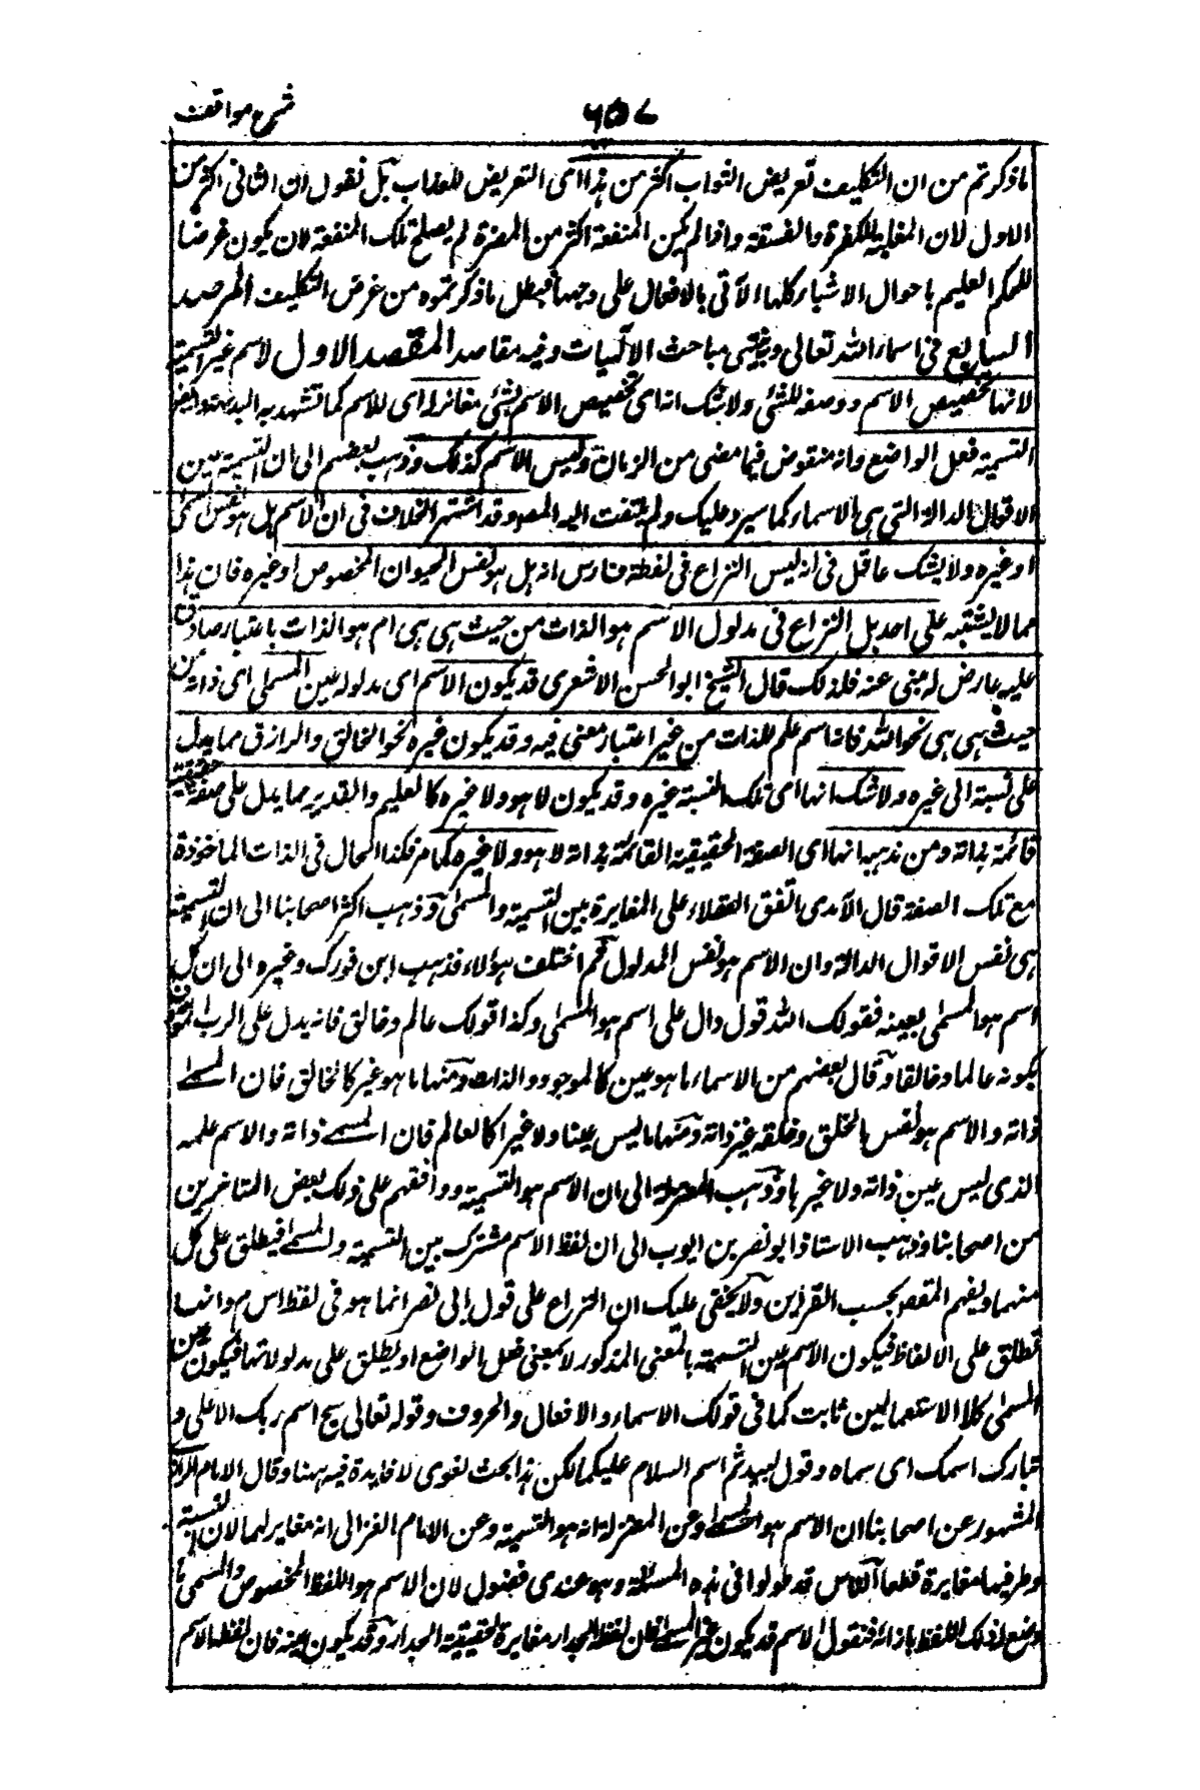 شرح مواقف
٦٥٧
ما ذكرتم من ان التكليف تعريض الثواب اكثر من هذا اى التعريض للعذاب بل نقول ان الثانى اكثر من
الاول لان الغلبة للكفرة والفسقة واذا لم يكن المنفعة اكثر من المضرة لم يصلح تلك المنفعة لان يكون غرضا
للحكيم العليم باحوال الاشياء كلها الآتى بالافعال على وجهها فبطل ما ذكرتموه من غرض التكليف المرصد
السابع فى اسماء الله تعالى وبه ينتهى مباحث الالٰهيات وفيه مقاصد المقصد الاول الاسم غير التسمية
لانها تخصيص الاسم ووضعه للشئ ولا شك انه اى تخصيص الاسم بشئ مغائر له اى للاسم كما تشهد به البديهة وايضا
التسمية فعل الواضع وانه منقوض فيما مضى من الزمان وليس الاسم كذلك وذهب بعضهم الى ان التسمية عين
الاقوال الدالة التى هى الاسماء كما سيرد عليك ولم يلتفت اليه المصـ وقد اشتهر الخلاف فى ان الاسم هل هو نفس المسمى
او غيره ولا يشك عاقل فى انه ليس النزاع فى لفظة فارس انه هل هو نفس الحيوان المخصوص او غيره فان هذا
مما لا يشتبه على احد بل النزاع فى مدلول الاسم هو الذات من حيث هى هى ام هو الذات باعتبار صادق
عليه عارض له مبنى عنه فلذلك قال الشيخ ابو الحسن الاشعرى قد يكون الاسم اى مدلوله عين المسمى اى ذاته من
حيث هى هى نحو الله فانه اسم علم للذات من غير اعتبار معنى فيه وقد يكون غيره نحو الخالق والرازق مما يدل
على نسبة الى غيره ولا شك انها اى تلك النسبة غيره وقد يكون لا هو ولا غيره كالعليم والقدير مما يدل على صفة حقيقية
قائمة بذاته ومن مذهبه انها اى الصفة الحقيقية القائمة بذاته لا هو ولا غيره كما مر فكذا الحال فى الذات الماخوذة
مع تلك الصفة قال الآمدى اتفق العقلاء على المغايرة بين التسمية والمسمى وذهب اكثر اصحابنا الى ان التسمية
هى نفس الاقوال الدالة وان الاسم هو نفس المدلول ثم اختلف هؤلاء فذهب ابن فورك وغيره الى ان كل
اسم هو المسمى بعينه فقولك الله قول دال على اسم هو المسمى وكذا قولك عالم وخالق فانه يدل على الرب الموصوف
بكونه عالما وخالقا وقال بعضهم من الاسماء ما هو عين كالموجود والذات ومنها ما هو غير كالخالق فان المسمى
ذاته والاسم هو نفس الخلق وخلقه غير ذاته ومنها ما ليس عينا ولا غيرا كالعالم فان المسمى ذاته والاسم علمه
الذى ليس عين ذاته ولا غيرها وذهب المعتزلة الى ان الاسم هو التسمية ووافقهم على ذلك بعض المتاخرين
من اصحابنا وذهب الاستاذ ابو نصر بن ايوب الى ان لفظ الاسم مشترك بين التسمية والمسمى فيطلق على كل
منهما ويفهم المقصـ بحسب القراين ولا يخفى عليك ان النزاع على قول ابى نصر انما هو فى لفظ اس م وانها
تطلق على الالفاظ فيكون الاسم عين التسمية بالمعنى المذكور لا بمعنى فعل الواضع او يطلق على مدلولاتها فيكون عين
المسمى كلا الاستعمالين ثابت كما فى قولك الاسماء والافعال والحروف وقوله تعالى سبح اسم ربك الاعلى و
تبارك اسمك اى سماه وقول لبيد ثم اسم السلام عليكما لكن هذا بحث لغوى لا فايدة فيه ههنا وقال الامام الرازى
المشهور عن اصحابنا ان الاسم هو المسمى وعن المعتزلة انه هو التسمية وعن الامام الغزالى انه مغاير لهما لان النسبة
وطرفيها مغايرة قطعا والناس قد طولوا فى هذه المسئلة وهو عندى فضول لان الاسم هو اللفظ المخصوص والمسمى ما
وضع لذلك اللفظ بازائه فنقول الاسم قد يكون غير المسمى فان لفظ الجدار مغايرة لحقيقة الجدار وقد يكون عينه فان لفظ الاسم